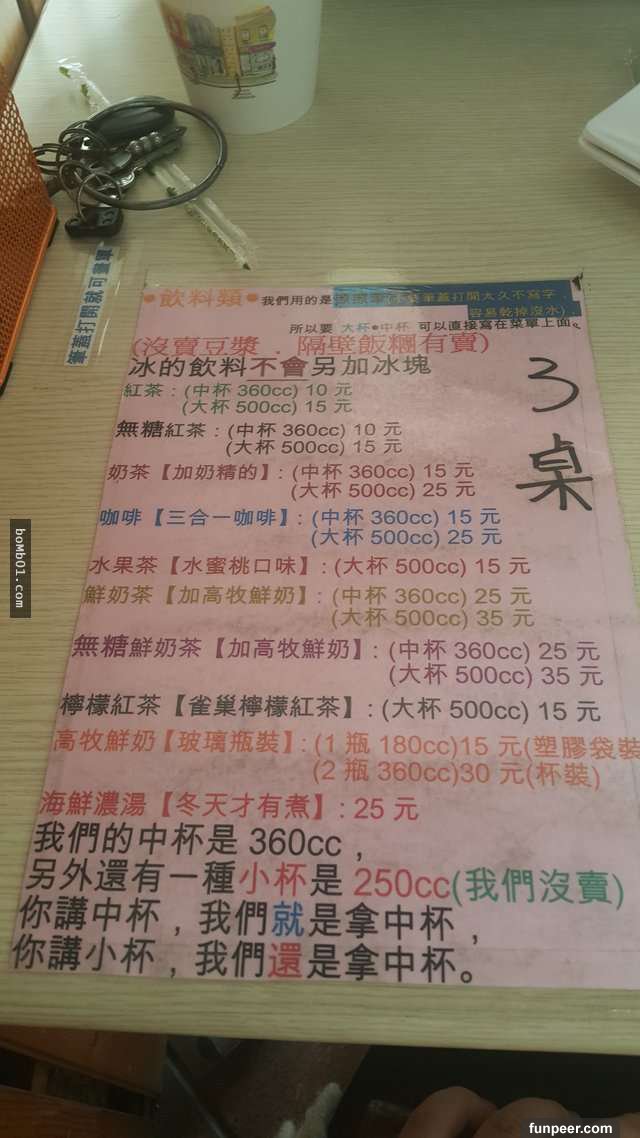 筆蓋打開就可畫單
•飲料類•我們用的是擦擦筆(筆蓋打開太久不寫字，
容易乾掉沒水)
所以要 大杯•中杯 可以直接寫在菜單上面。
(沒賣豆漿．隔壁飯糰有賣)
冰的飲料不會另加冰塊
3
桌
紅茶：(中杯 360cc) 10 元
(大杯 500cc) 15 元
無糖紅茶：(中杯 360cc) 10 元
(大杯 500cc) 15 元
奶茶【加奶精的】：(中杯 360cc) 15 元
(大杯 500cc) 25 元
咖啡【三合一咖啡】：(中杯 360cc) 15 元
(大杯 500cc) 25 元
水果茶【水蜜桃口味】：(大杯 500cc) 15 元
鮮奶茶【加高牧鮮奶】：(中杯 360cc) 25 元
(大杯 500cc) 35 元
無糖鮮奶茶【加高牧鮮奶】：(中杯 360cc) 25 元
(大杯 500cc) 35 元
檸檬紅茶【雀巢檸檬紅茶】：(大杯 500cc) 15 元
高牧鮮奶【玻璃瓶裝】：(1 瓶 180cc)15 元(塑膠袋裝
(2 瓶 360cc)30 元(杯裝)
海鮮濃湯【冬天才有煮】：25 元
我們的中杯是 360cc，
另外還有一種小杯是 250cc(我們沒賣)
你講中杯，我們就是拿中杯，
你講小杯，我們還是拿中杯。
boMb01.com
funpeer.com